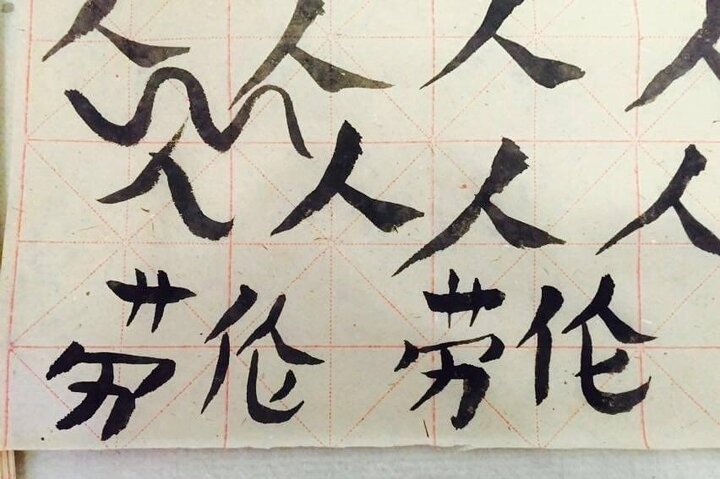 人人人人
人人人人
劳伦劳伦